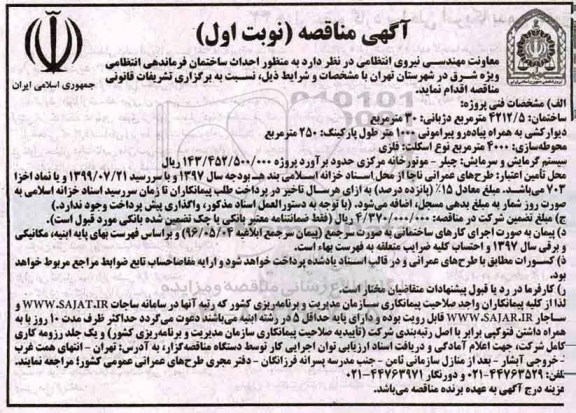 آگهی مناقصه (نوبت اول)
جمهوری اسلامی ایران
معاونت مهندسی نیروی انتظامی در نظر دارد به منظور احداث ساختمان فرماندهی انتظامی
ویژه شرق در شهرستان تهران با مشخصات و شرایط ذیل، نسبت به برگزاری تشریفات قانونی
مناقصه اقدام نماید.
الف) مشخصات فنی پروژه:
ساختمان: ۴۲۱۲/۵ مترمربع دژبانی: ۳۰ مترمربع
دیوارکشی به همراه پیاده‌رو پیرامونی ۱۰۰۰ متر طول پارکینگ: ۲۵۰ مترمربع
محوطه‌سازی: ۴۰۰۰ مترمربع نوع اسکلت: فلزی
سیستم گرمایش و سرمایش: چیلر - موتورخانه مرکزی حدود برآورد پروژه ۱۴۳/۴۵۲/۵۰۰/۰۰۰ ریال
محل تأمین اعتبار: طرح‌های عمرانی ناجا از محل اسناد خزانه اسلامی بند هـ بودجه سال ۱۳۹۷ و یا سررسید ۱۳۹۹/۰۷/۲۱ و یا نماد اخزا
۷۰۳ می‌باشد. مبلغ معادل ۱۵٪ (پانزده درصد) به ازای هر سال تاخیر در پرداخت طلب پیمانکاران تا زمان سررسید اسناد خزانه اسلامی به
صورت روز شمار به مبلغ بدهی مسجل، اضافه می‌شود. (با توجه به دستورالعمل اسناد مذکور، واگذاری پیش پرداخت وجود ندارد.)
ج) مبلغ تضمین شرکت در مناقصه: ۴/۳۷۰/۰۰۰/۰۰۰ ریال (فقط ضمانتنامه معتبر بانکی یا چک تضمین شده بانکی مورد قبول است).
د) پیمان به صورت اجرای کارهای ساختمانی به صورت سرجمع (پیمان سرجمع ابلاغیه ۹۶/۰۵/۰۴) و براساس فهرست بهای پایه ابنیه، مکانیکی
و برقی سال ۱۳۹۷ و احتساب کلیه ضرایب متعلقه به فهرست بهاء است.
ذ) کسورات مطابق با طرح‌های عمرانی و در قالب اسناد یادشده پرداخت خواهد شود و ارایه مفاصاحساب تابع ضوابط مراجع مربوط خواهد
بود.
ر) کارفرما در رد یا قبول پیشنهادات متقاضیان مختار است.
لذا از کلیه پیمانکاران واجد صلاحیت پیمانکاری سازمان مدیریت و برنامه‌ریزی کشور که رتبه آنها در سامانه ساجات WWW.SAJAT.IR و
ساجار WWW.SAJAR.IR قابل رویت بوده و دارای پایه حداقل ۵ در رشته ابنیه می‌باشند دعوت می‌گردد حداکثر ظرف مدت ۱۰ روز با به
همراه داشتن فتوکپی برابر با اصل رتبه‌بندی شرکت (تأییدیه صلاحیت پیمانکاری سازمان مدیریت و برنامه‌ریزی کشور) و یک جلد رزومه کاری
کامل شرکت، جهت اعلام آمادگی و دریافت اسناد ارزیابی توان اجرایی کار توسط دستگاه مناقصه‌گزار، به آدرس: تهران - انتهای همت غرب
- خروجی آبشار - بعد از منازل سازمانی ثامن - جنب مدرسه پسرانه فرزانگان - دفتر مجری طرح‌های عمرانی عمومی کشور؛ مراجعه نمایند.
تلفن: ۴۴۷۶۳۵۲۹-۰۲۱ و دورنگار ۴۴۷۶۳۹۷۱-۰۲۱
هزینه درج آگهی به عهده برنده مناقصه می‌باشد.